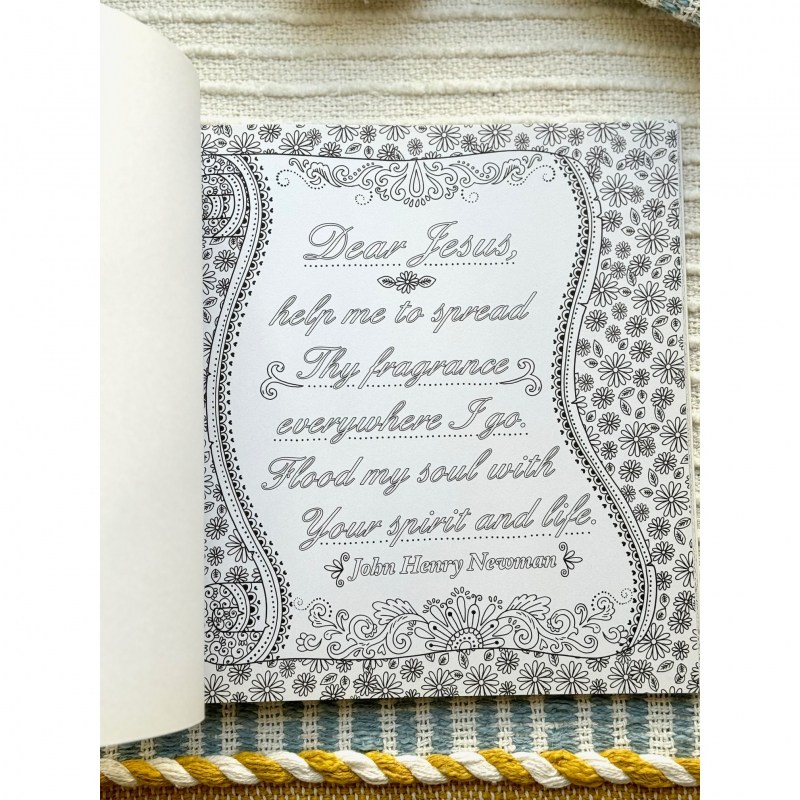 Dear Jesus,
help me to spread
Thy fragrance
everywhere I go.
Flood my soul with
Your spirit and life.
John Henry Newman